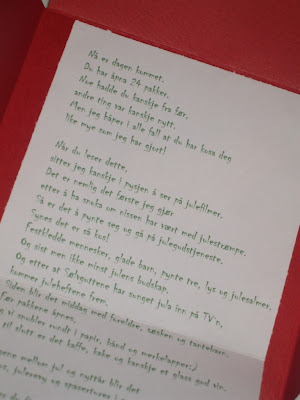 Nå er dagen kommet.
Du har åpna 24 pakker.
Noe hadde du kanskje fra før,
andre ting var kanskje nytt.
Men jeg håper i alle fall at du har kosa deg
like mye som jeg har gjort!
Når du leser dette,
sitter jeg kanskje i pysjen å ser på julefilmer.
Det er nemlig det første jeg gjør
etter å ha snoka om nissen har vært med julestrømpe.
Så er det å pynte seg og gå på julegudstjeneste.
Synes det er så kos!
Festkledde mennesker, glade barn, pynte tre, lys og julesalmer,
Og sist men ikke minst julens budskap.
Og etter at Sølvguttene har sunget jula inn på TV'n,
kommer juleheftene frem.
Siden blir det middag med foreldre, søsken og tantebarn.
Før pakkene åpnes,
og vi smobler rundt i papir, bånd og merkelapper:)
til slutt er det kaffe, kake og kanskje et glass god vin.
mellom jul og nyttår blir det